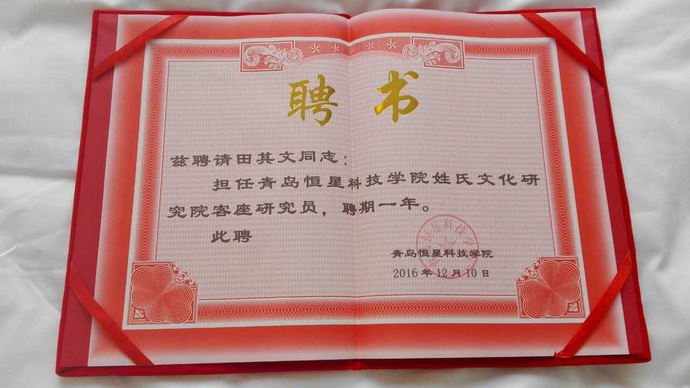 聘书
兹聘请田其文同志：
担任青岛恒星科技学院姓氏文化研
究院客座研究员，聘期一年。
此聘
青岛恒星科技学院
2016年12月10日